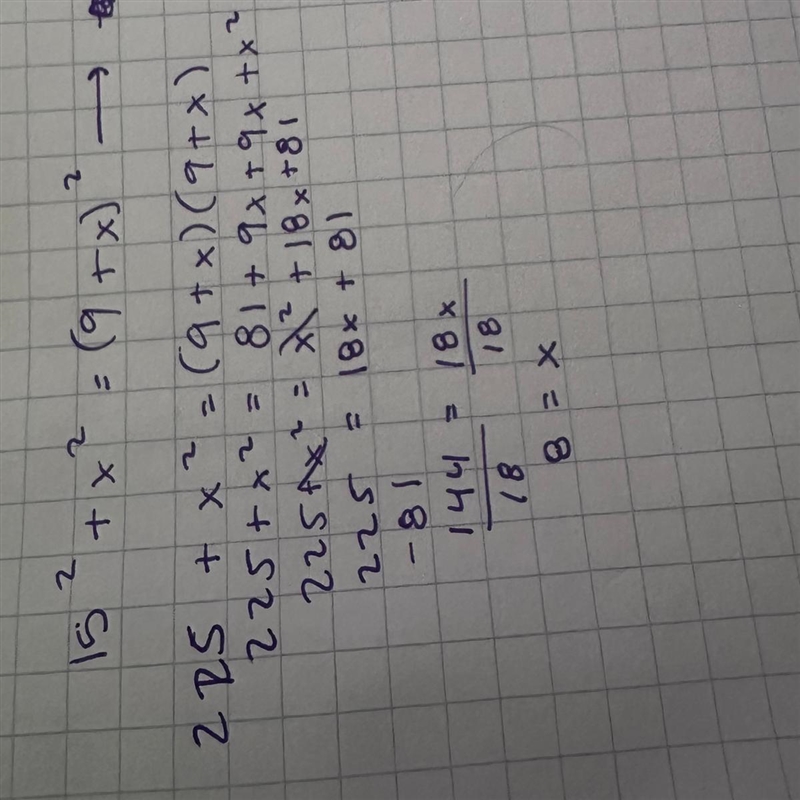 15² + x² = (9 + x)² →
225 + x² = (9 + x)(9 + x)
225 + x² = 81 + 9x + 9x + x²
225 + x² = x² + 18x + 81
225 = 18x + 81
-81
144/18 = 18x/18
8 = x